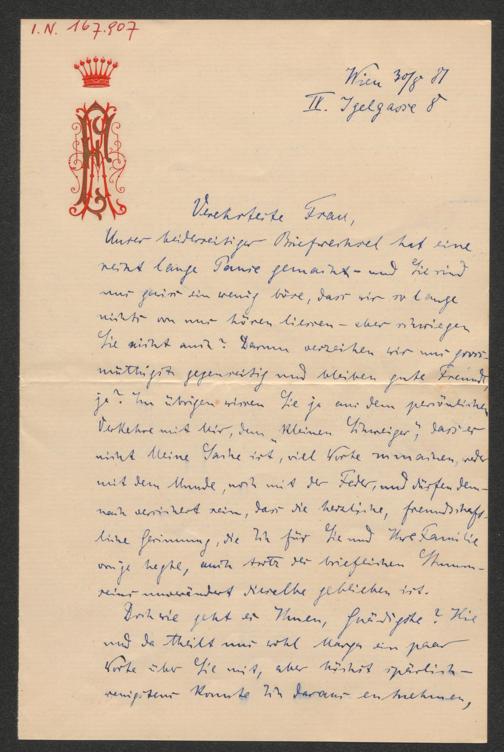 I.N. 167.907
Wien 30/8 81
IV. Igelgasse 8
Verehrteste Frau,
Unser beiderseitiger Briefwechsel hat eine
recht lange Pause gemacht – und Sie sind
mir gewiss ein wenig böse, dass wir so lange
nichts von uns hören liessen – aber schwiegen
Sie nicht auch? Darum verzeihen wir uns gross-
müthigst gegenseitig und bleiben gute Freunde,
ja? Im übrigen wissen Sie ja aus dem persönlichen
Verkehre mit mir, dem „kleinen Schweiger“, dass es
nicht meine Sache ist, viel Worte zu machen, weder
mit dem Munde, noch mit der Feder, und dürfen dem-
nach versichert sein, dass die herzliche, freundschaft-
liche Gesinnung, die ich für Sie und Ihre Familie
hegte, auch trotz der brieflichen Stumm-
heit unverändert dieselbe geblieben ist.
Doch wie geht es Ihnen, Gnädigste? Hie
und da theilt uns wohl ein paar
Worte über Sie mit, aber höchst spärlich –
wenigstens konnte ich daraus entnehmen,